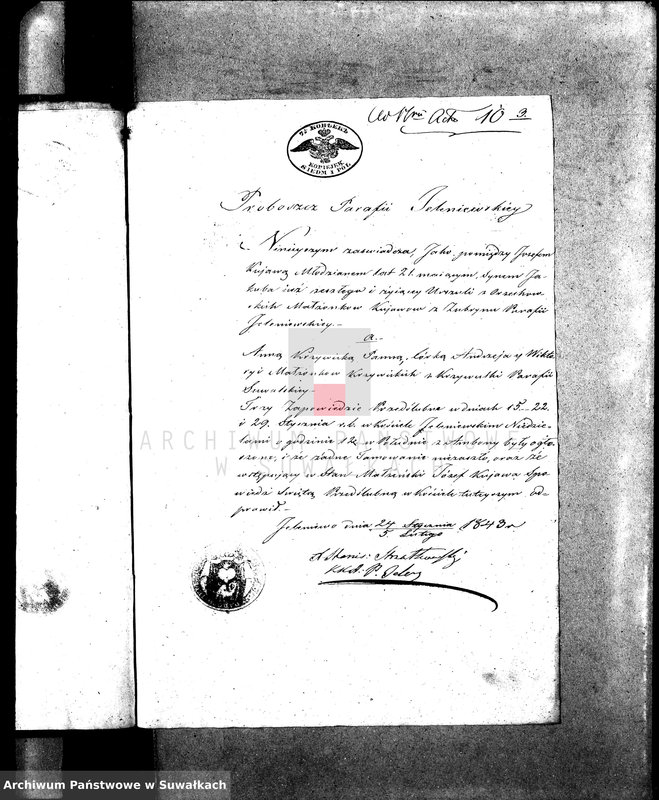 do Nru Aktu 10 3.
7½ КОПѢЕКЪ
KOPIEJEK
SIEDM I PÓŁ
Proboszcz Parafii Jeleniewskiey
Ninieyszym zaświadcza, Jako pomiędzy Jozefem
Kujawą Młodzianem lat 21. maiącym, Synem Ja-
kuba iuż zeszłego i żyiącey Urszuli z Orzechow-
skich Małżonków Kujawów z Żubryna Parafii
Jeleniewskiey.-
a.-
Anną Krzywicką Panną, Córką Andrzeja y Wikto-
ryi Małżonków Krzywickich z Krzywulki Parafii
Suwalskiey.-
Trzy Zapowiedzie Przedślubne w dniach 15. 22.
i 29. Stycznia r.b. w Kościele Jeleniewskim Niedzie-
lami o godzinie 12. w Południe z Ambony były ogło-
szone, i że żadne Tamowanie niezaszło, oraz że
wstępujący w Stan Małżeński Józef Kujawa Spo-
wiedź Świętą Przedślubną w Kościele tuteyszym od-
prawił.-
Jeleniewo dnia 24 Stycznia 1843 r
5. Lutego
X Stanis:
P. Jelen
ARCHIWUM PAŃSTWOWE
W SUWAŁKACH
Archiwum Państwowe w Suwałkach